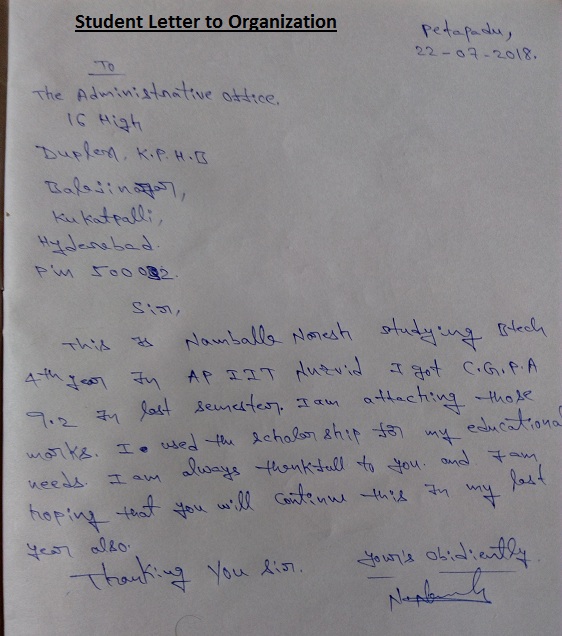 Student Letter to Organization
Petapadu,
22-07-2018.
To
The Administrative office.
16 High
Duplex, K.P.H.B
Balajinagar,
Kukatpalli,
Hyderabad.
Pin 500032.
Sir,
This is Namballa Naresh studying Btech
4th year In AP IIIT Nuzvid I got C.G.P.A
9.2 In last semester. I am attaching those
marks. I used the scholarship for my educational
needs. I am always thankfull to you. and I am
hoping that you will continue this In my last
year also.
Thanking You Sir.
your's obidiently.